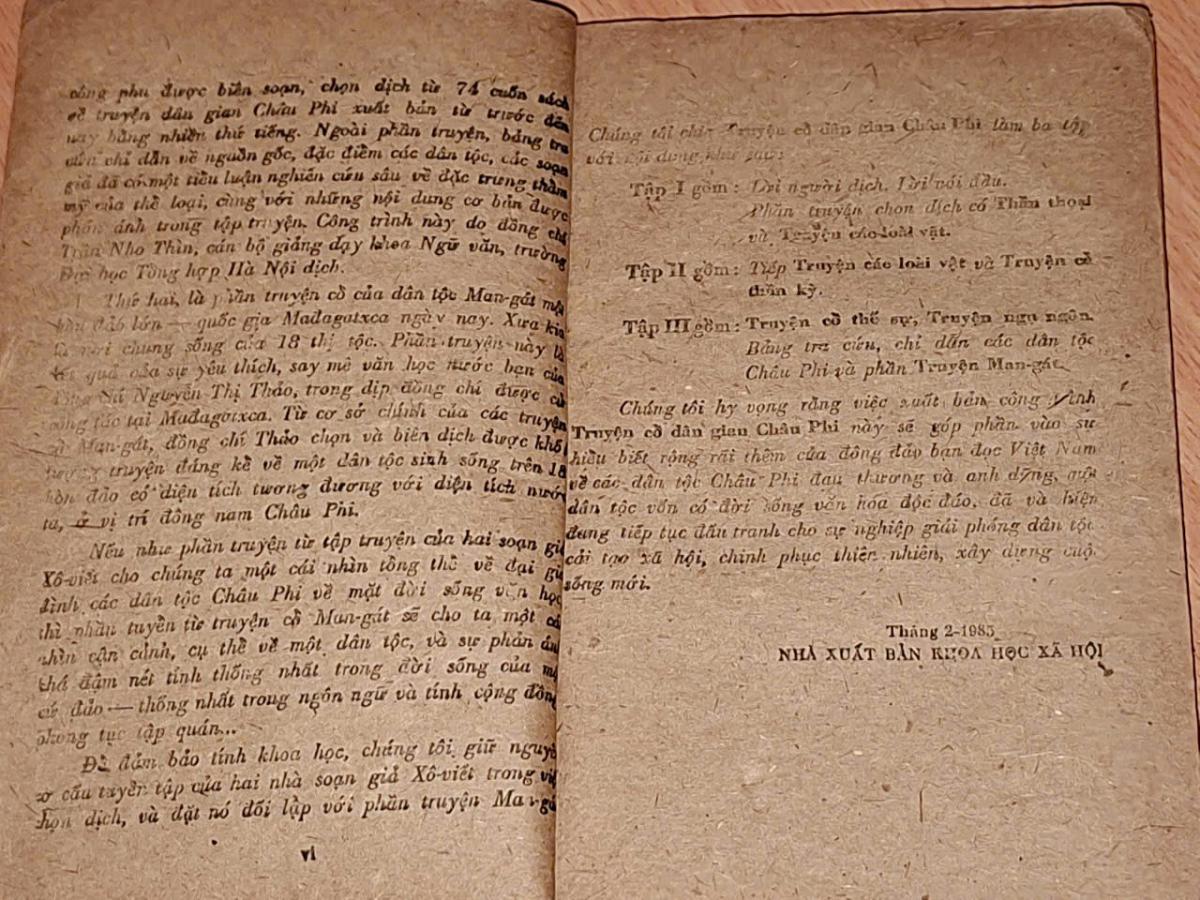 công phu được biên soạn, chọn dịch từ 74 cuốn sách
về truyện dân gian Châu Phi xuất bản từ trước đến
nay bằng nhiều thứ tiếng. Ngoài phần truyện, bảng tra
cứu chỉ dẫn về nguồn gốc, đặc điểm các dân tộc, các soạn
giả đã có một tiểu luận nghiên cứu sâu về đặc trưng thẩm
mỹ của thể loại, cùng với những nội dung cơ bản được
phản ánh trong tập truyện. Công trình này do đồng chí
Trần Nho Thìn, cán bộ giảng dạy khoa Ngữ văn, trường
Đại học Tổng hợp Hà Nội dịch.
Thứ hai, là phần truyện cổ của dân tộc Man-gát một
hòn đảo lớn — quốc gia Mađagatxca ngày nay. Xưa kia
là nơi chung sống của 18 thị tộc. Phần truyện này là
kết quả của sự yêu thích, say mê văn học nước bạn của
Nguyễn Thị Thảo, trong dịp đồng chí được cử
công tác tại Mađagatxca. Từ cơ sở chính của các truyện
cổ Man-gát, đồng chí Thảo chọn và biên dịch được khối
lượng truyện đáng kể về một dân tộc sinh sống trên 18
hòn đảo có diện tích tương đương với diện tích nước
ta, ở vị trí đông nam Châu Phi.
Nếu như phần truyện từ tập truyện của hai soạn giả
Xô-viết cho chúng ta một cái nhìn tổng thể về đại gia
đình các dân tộc Châu Phi về mặt đời sống văn học
thì phần tuyển từ truyện cổ Man-gát sẽ cho ta một cái
nhìn cận cảnh, cụ thể về một dân tộc, và sự phản ánh
khá đậm nét tính thống nhất trong đời sống của
đảo — thống nhất trong ngôn ngữ và tính cộng đồng
phong tục tập quán...
Để đảm bảo tính khoa học, chúng tôi giữ nguyên
cơ cấu tuyển tập của hai nhà soạn giả Xô-viết trong việc
chọn dịch, và đặt nó đối lập với phần truyện Man-gát
vi
Chúng tôi chia Truyện cổ dân gian Châu Phi làm ba tập
với nội dung như sau:
Tập I gồm: Lời người dịch. Lời nói đầu.
Phần truyện chọn dịch có Thần thoại
và Truyện các loài vật.
Tập II gồm: Tiếp Truyện các loài vật và Truyện cổ
thần kỳ.
Tập III gồm: Truyện cổ thế sự, Truyện ngụ ngôn.
Bảng tra cứu, chỉ dẫn các dân tộc
Châu Phi và phần Truyện Man-gát.
Chúng tôi hy vọng rằng việc xuất bản công trình
Truyện cổ dân gian Châu Phi này sẽ góp phần vào sự
hiểu biết rộng rãi thêm của đông đảo bạn đọc Việt Nam
về các dân tộc Châu Phi đau thương và anh dũng, một
dân tộc vốn có đời sống văn hóa độc đáo, đã và hiện
đang tiếp tục đấu tranh cho sự nghiệp giải phóng dân tộc
cải tạo xã hội, chinh phục thiên nhiên, xây dựng cuộc
sống mới.
Tháng 2-1985
NHÀ XUẤT BẢN KHOA HỌC XÃ HỘI